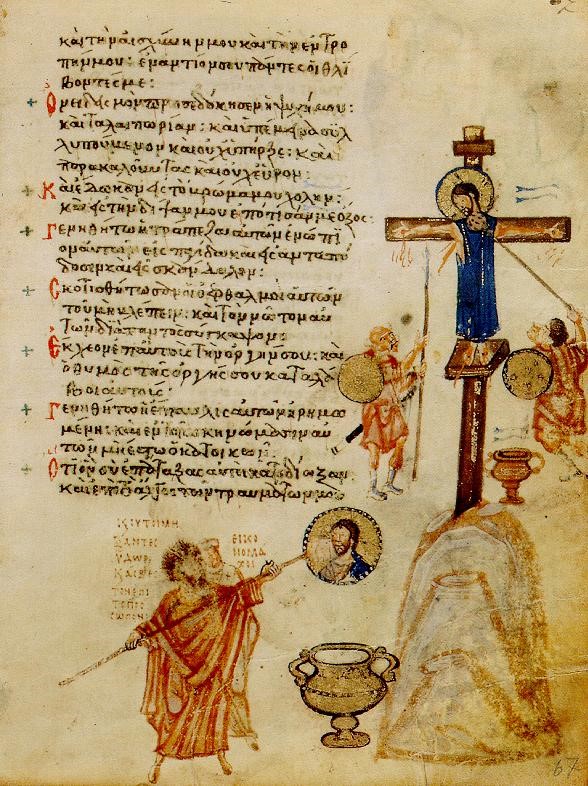 καὶ τὴν αἰσχύνην μου καὶ τὴν ἐντρο
πήν μου· ἐναντίον σου πάντες οἱ θλί
βοντές με:
Ὀνειδισμὸν προσεδόκησεν ἡ ψυχή μου:
καὶ ταλαιπωρίαν: καὶ ὑπέμεινα συλ
λυπούμενον καὶ οὐχ ὑπῆρξε: καὶ
παρακαλοῦντας καὶ οὐχ εὗρον:
Καὶ ἔδωκαν εἰς τὸ βρῶμά μου χολήν:
καὶ εἰς τὴν δίψαν μου ἐπότισάν με ὄξος:
Γενηθήτω ἡ τράπεζα αὐτῶν ἐνώπι
ον αὐτῶν εἰς παγίδα καὶ εἰς ἀνταπό
δοσιν καὶ εἰς σκάνδαλον:
Σκοτισθήτωσαν οἱ ὀφθαλμοὶ αὐτῶν
τοῦ μὴ βλέπειν: καὶ τὸν νῶτον αὐ
τῶν διὰ παντὸς σύγκαμψον:
Ἔκχεον ἐπ' αὐτοὺς τὴν ὀργήν σου: καὶ
ὁ θυμὸς τῆς ὀργῆς σου καταλά
βοι αὐτούς:
Γενηθήτω ἡ ἔπαυλις αὐτῶν ἠρημω
μένη: καὶ ἐν τοῖς σκηνώμασιν αὐ
τῶν μὴ ἔστω ὁ κατοικῶν:
Ὅτι ὃν σὺ ἐπάταξας αὐτοὶ κατεδίωξαν
καὶ ἐπὶ τὸ ἄλγος τῶν τραυμάτων μου
ΞΑΝΤΕΣ
ΥΔΩΡ
ΚΑΣΒΕ
ΤΟΝΕΠΙ
ΤΟΠΡΟΣ
ΩΠΟΝ
ΕΙΚΟ
ΝΟΜΑ
ΧΟΙ
67